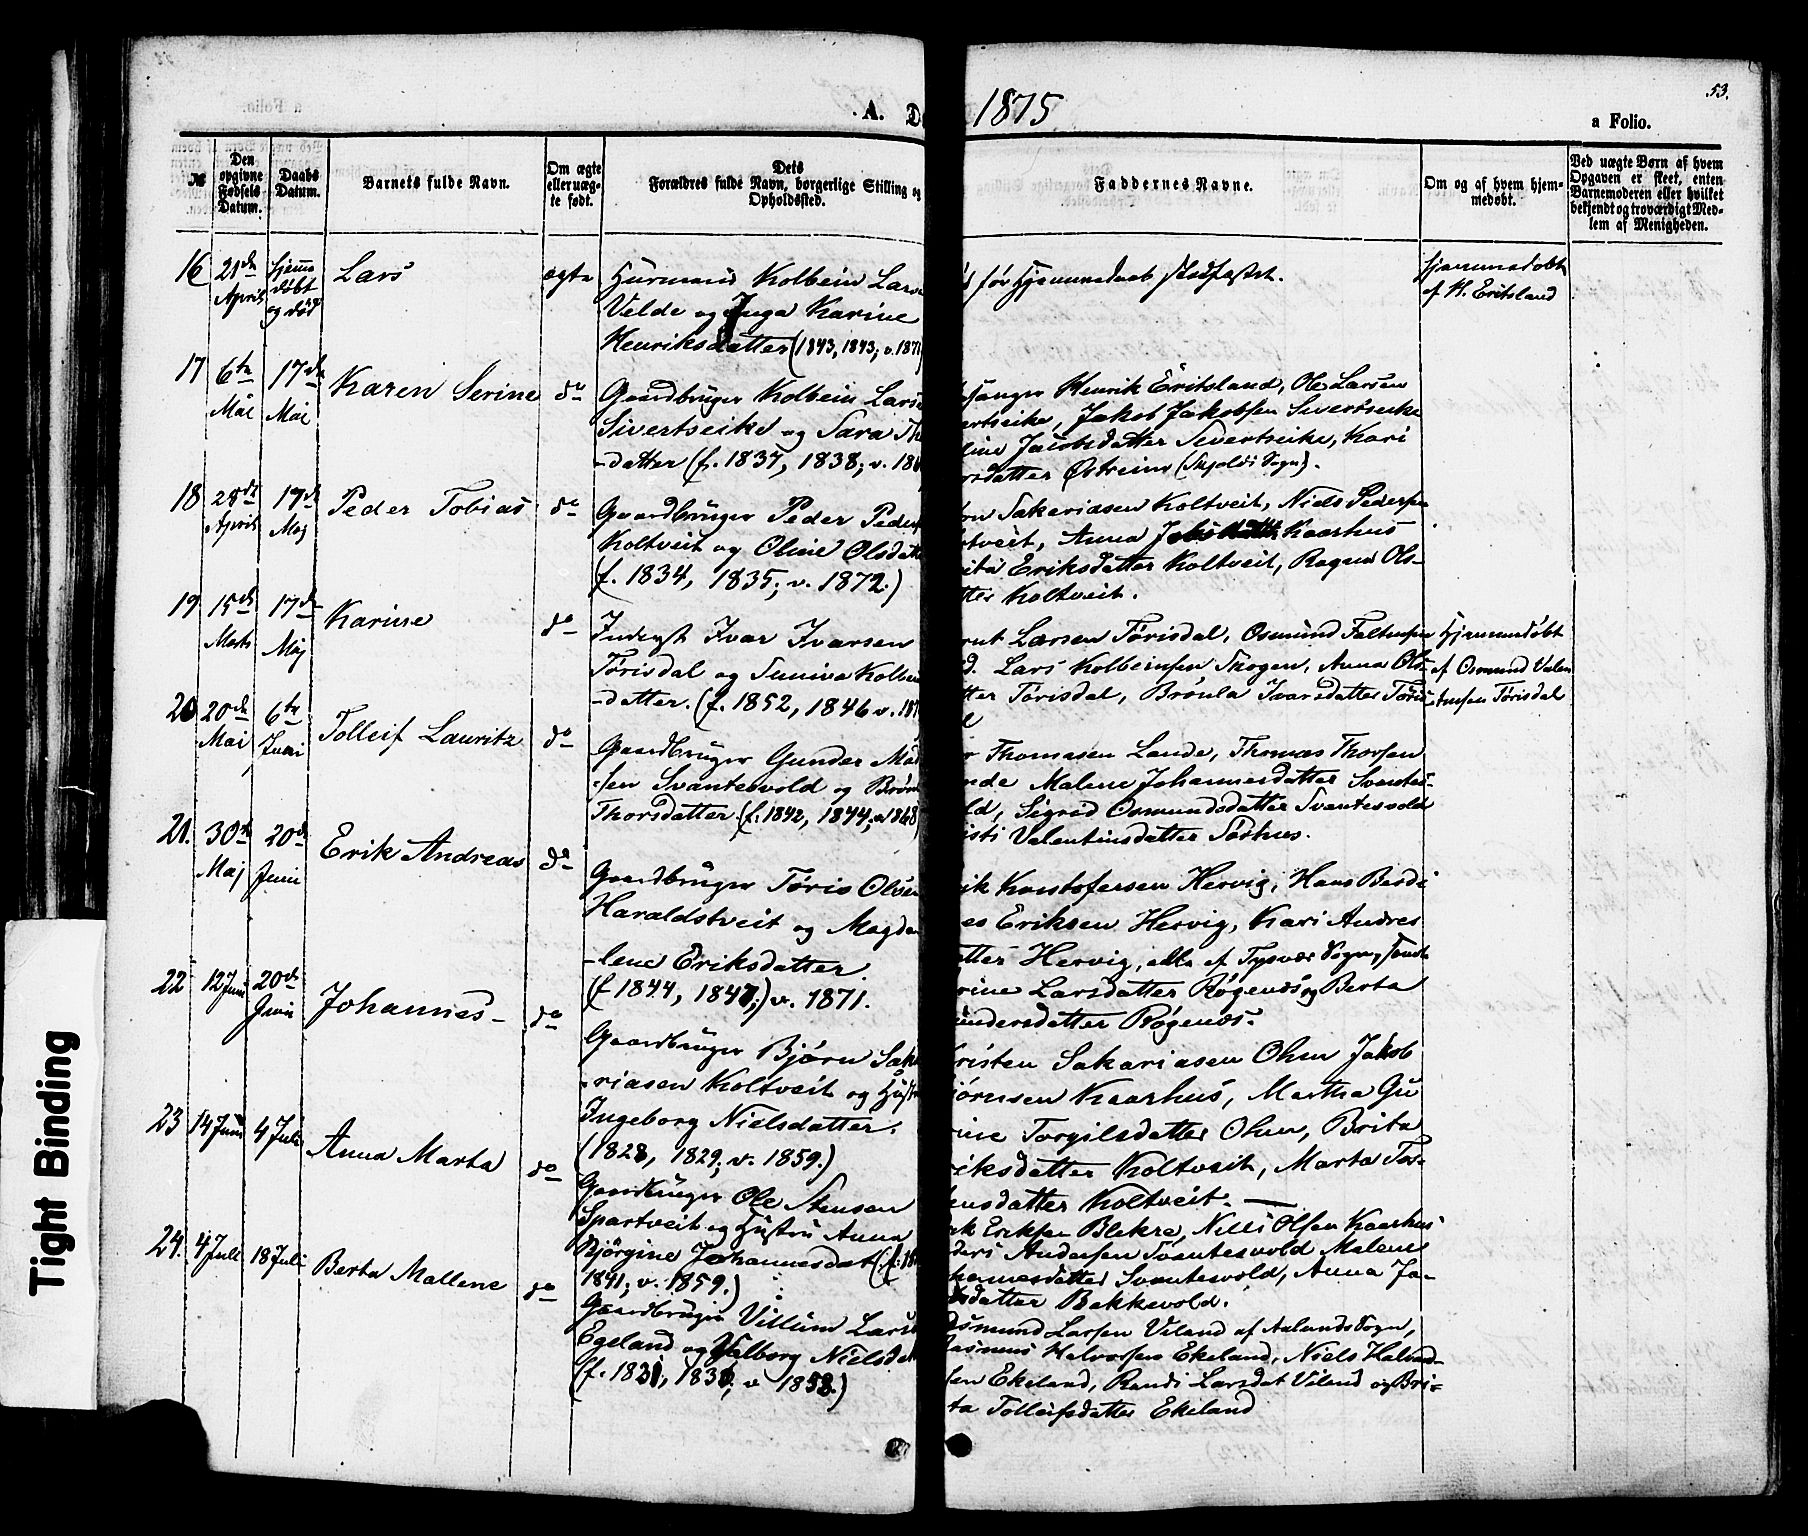 53.
A. D
1875
a Folio.
№
Den opgivne Fødsels Datum.
Daabs Datum.
Barnets fulde Navn.
Om ægte eller uæg-te født.
Dets Forældres fulde Navn, borgerlige Stilling og Opholdssted.
Faddernes Navne.
Om og af hvem hjem-medøbt.
Ved uægte Børn af hvem Opgaven er skeet, enten Barnemoderen eller hvilket bekjendt og troværdigt Med-lem af Menigheden.
16 21de April Hjemmedøbt og død Lars ægte
Huusmand Kolbein Lars
Velde og Inga Karine
Henriksdatter (1843, 1843; v. 187
før Hjemmedaab stadfæstet.
Hjemmedøbt
af H. Eritsland
17 6te Mai 17de Mai Karen Serine do
Gaardbruger Kolbein Lars
Sivertseike og Sara Th
-datter (f. 1837, 1838; v. 18
sanger Henrik Eritsland, Ole Larsen
ertseike, Jakob Jakobsen Sivertseike
line Jacobsdatter Sivertseike, Kari
rsdatter Østreim (Skjolds Sogn).
18 28de April 17de Maj Peder Tobias do
Gaardbruger Peder Peders
Koltveit og Oline Olsdatt
(f. 1834, 1835; v. 1872.)
ørn Sakariasen Koltveit, Niels Pedersen
ltveit, Anna Jakobsdatter Kaarhus
ita Eriksdatter Koltveit, Ragna Ols-
tter Koltveit.
19 15de Marts 17de Maj Karine do
Inderst Ivar Ivarsen
Tørisdal og Suniva Kolbein
-datter. (f. 1852, 1846 v. 187
nut Larsen Tørisdal, Osmund
d. Lars Kolbeinsen Skogen, Anna Ols-
tter Tørisdal, Brønla Ivarsdatter Tøris
l
Hjemmedøbt
af Osmund Valen
tinsen Tørisdal
20 20de Mai 6te Juni Tolleif Lauritz do
Gaardbruger Gunder Mad
-sen Svantesvold og Brøn
Thorsdatter. (f. 1842, 1844, v. 1868)
r Thomasen Lande, Thomas Thorsen
nde Malene Johannesdatter Svantes-
ld, Sigrid Osmundsdatter Svantesvold
isti Valentinsdatter Søshus.
21. 30te Maj 20de Juni Erik Andreas do
Gaardbruger Tøris Olsen
Haraldstveit og Magda
-lene Eriksdatter.
(f 1844, 1847;) v. 1871.
ik Kristofersen Hervig, Hans Berdi
es Eriksen Hervig, Kari Andres
atter Hervig, alle af Tysvær Sogn,
rine Larsdatter Røgenæs og Berta
undersdatter Røgenæs.
22 12 Juni 20de Juni Johannes- do
Gaardbruger Bjørn Saka
-riasen Koltveit og Hustr
Ingeborg Nielsdatter.
(1828, 1829; v. 1859.)
risten Sakariasen Ohm Jakob
jørnsen Kaarhus, Martha Gu
rine Torgilsdatter Ohm, Brita
riksdatter Koltveit, Marta Tos-
ensdatter Koltveit. —
23 14 Juni 4 Juli Anna Marta do
Gaardbruger Ole Stensen
Spartveit og Hustru Anna
Bjørgine Johannesdat (f. 18
1841; v. 1859.)
ik Eriksen Blekre, Nills Olsen Kaarhus
ders Andersen Svantesvold Malene
hannesdatter Svantesvold, Anna Ja-
sdatter Bakkevold.
24. 4 Juli 18 Juli Berta Mallene do
Gaardbruger Villum Lars
Egeland og Valborg Nielsdat
(f. 1831, 1836, v 1858.)
Osmund Larsen Viland af Aalunds Sogn,
asmus Halvorsen Ekeland, Niels Halvord-
sen Ekeland, Randi Larsdat Viland og Bri-
ta Tolleifsdatter Ekeland
Tight Binding